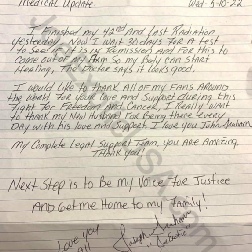 Medical Update. Wed. 5-18-22
I finished my 42nd and last Radiation
Yesterday. Now I wait 30 days for a test
to see if it is in Remission and for this to
come out of my skin so my body can start
Healing, The Doctor says it looks good.
I would like to thank all of my fans around
the world for your love and support during this
fight for Freedom and Cancer. I really want
to thank my New Husband for being there every
Day with his love and support. I love you John
My complete Legal Support Team, you are amazing
Thank you!
Next Step is to be my voice for Justice
And get me home to my family!
Love you
all